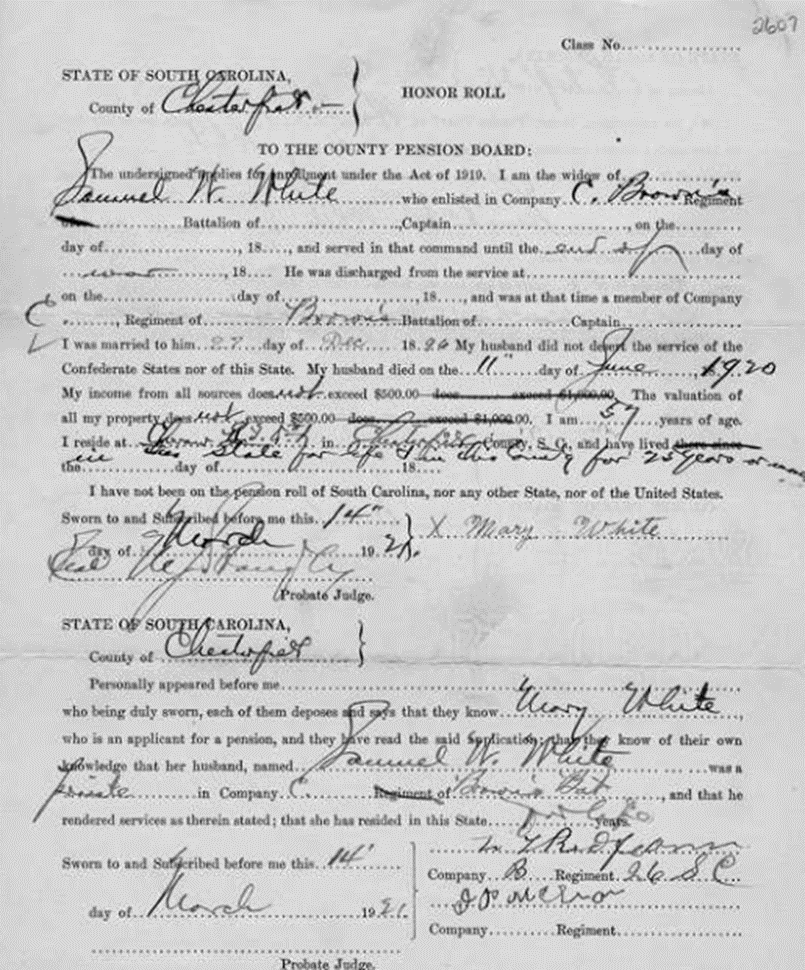 2607
Class No.
STATE OF SOUTH CAROLINA,
County of Chesterfield
HONOR ROLL
TO THE COUNTY PENSION BOARD:
The undersigned applies for enrollment under the Act of 1919. I am the widow of
Samuel W. White who enlisted in Company C. Brown's Regiment
Battalion of, Captain, on the
day of, 18, and served in that command until the end of day of
war, 18. He was discharged from the service at
on the day of, 18, and was at that time a member of Company
C, Regiment of Brown's Battalion of Captain
I was married to him 27 day of Dec 18 My husband did not desert the service of the
Confederate States nor of this State. My husband died on the 11" day of June 1920
My income from all sources does not exceed $500.00 does exceed $1,000.00. The valuation of
all my property does not exceed $500.00 does exceed $1,000.00. I am 57 years of age.
I reside at in Chesterfield County, S. C., and have lived there since
in this State for life & in this County for 25 years or more
the day of 18
I have not been on the pension roll of South Carolina, nor any other State, nor of the United States.
Sworn to and Subscribed before me this 14"
X Mary White
day of March 1921.
Seal
Probate Judge.
STATE OF SOUTH CAROLINA,
County of Chesterfield
Personally appeared before me
who being duly sworn, each of them deposes and says that they know Mary White,
who is an applicant for a pension, and they have read the said application; that they know of their own
knowledge that her husband, named Samuel W. White was a
private in Company C. Regiment of Brown's Bat, and that he
rendered services as therein stated; that she has resided in this State for life years.
Sworn to and Subscribed before me this 14"
Company B Regiment 26 S C
day of March 1921.
Company Regiment.
Probate Judge.